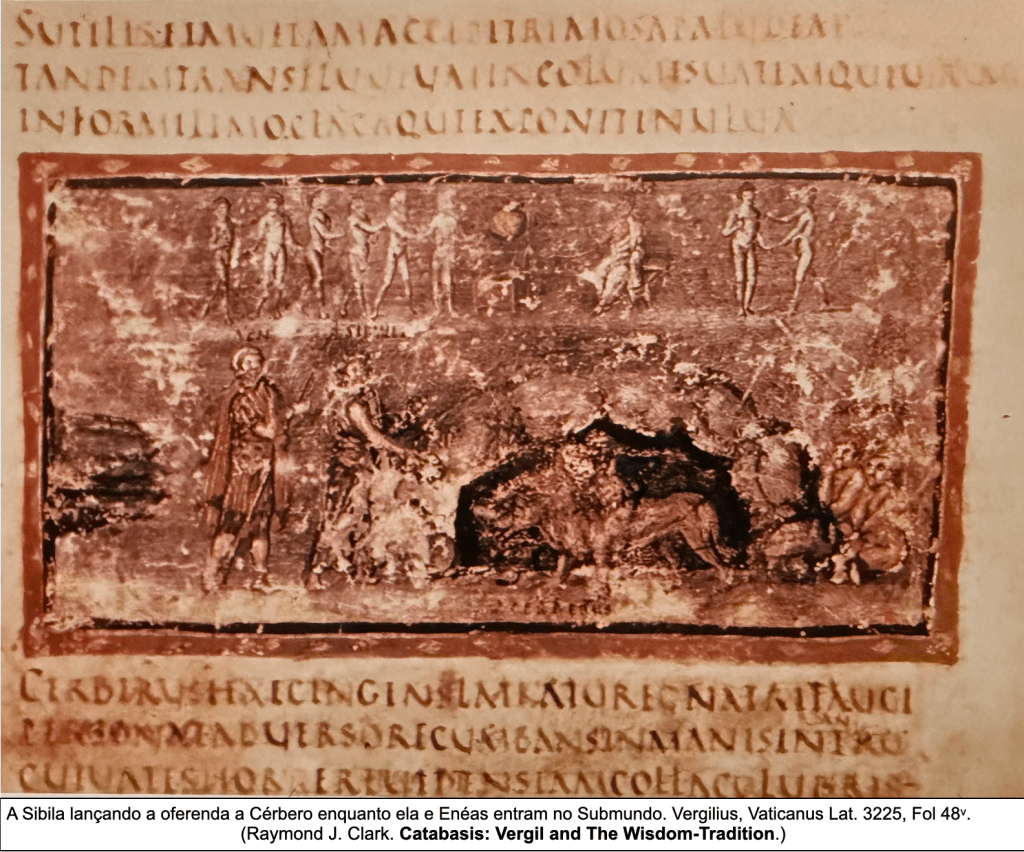 SUTILISETMULTAMACCEPITRIMOSAPALUDEM
TANDEMTRANSFLUUIUMINCOLUMISUATEMQUEUIRUM
INFORMILIMOGLAUCAQUEEXPONITINULUA
CERBERUSHAECINGENSLATRATUREGNATRIFAUCI
PERSONATADUERSORECUBANSINMANISINANTRO
CUIUATESHORREREUIDENSIAMCOLLACOLUBRIS
A Sibila lançando a oferenda a Cérbero enquanto ela e Enéas entram no Submundo. Vergilius, Vaticanus Lat. 3225, Fol 48ᵛ.
(Raymond J. Clark. Catabasis: Vergil and The Wisdom-Tradition.)